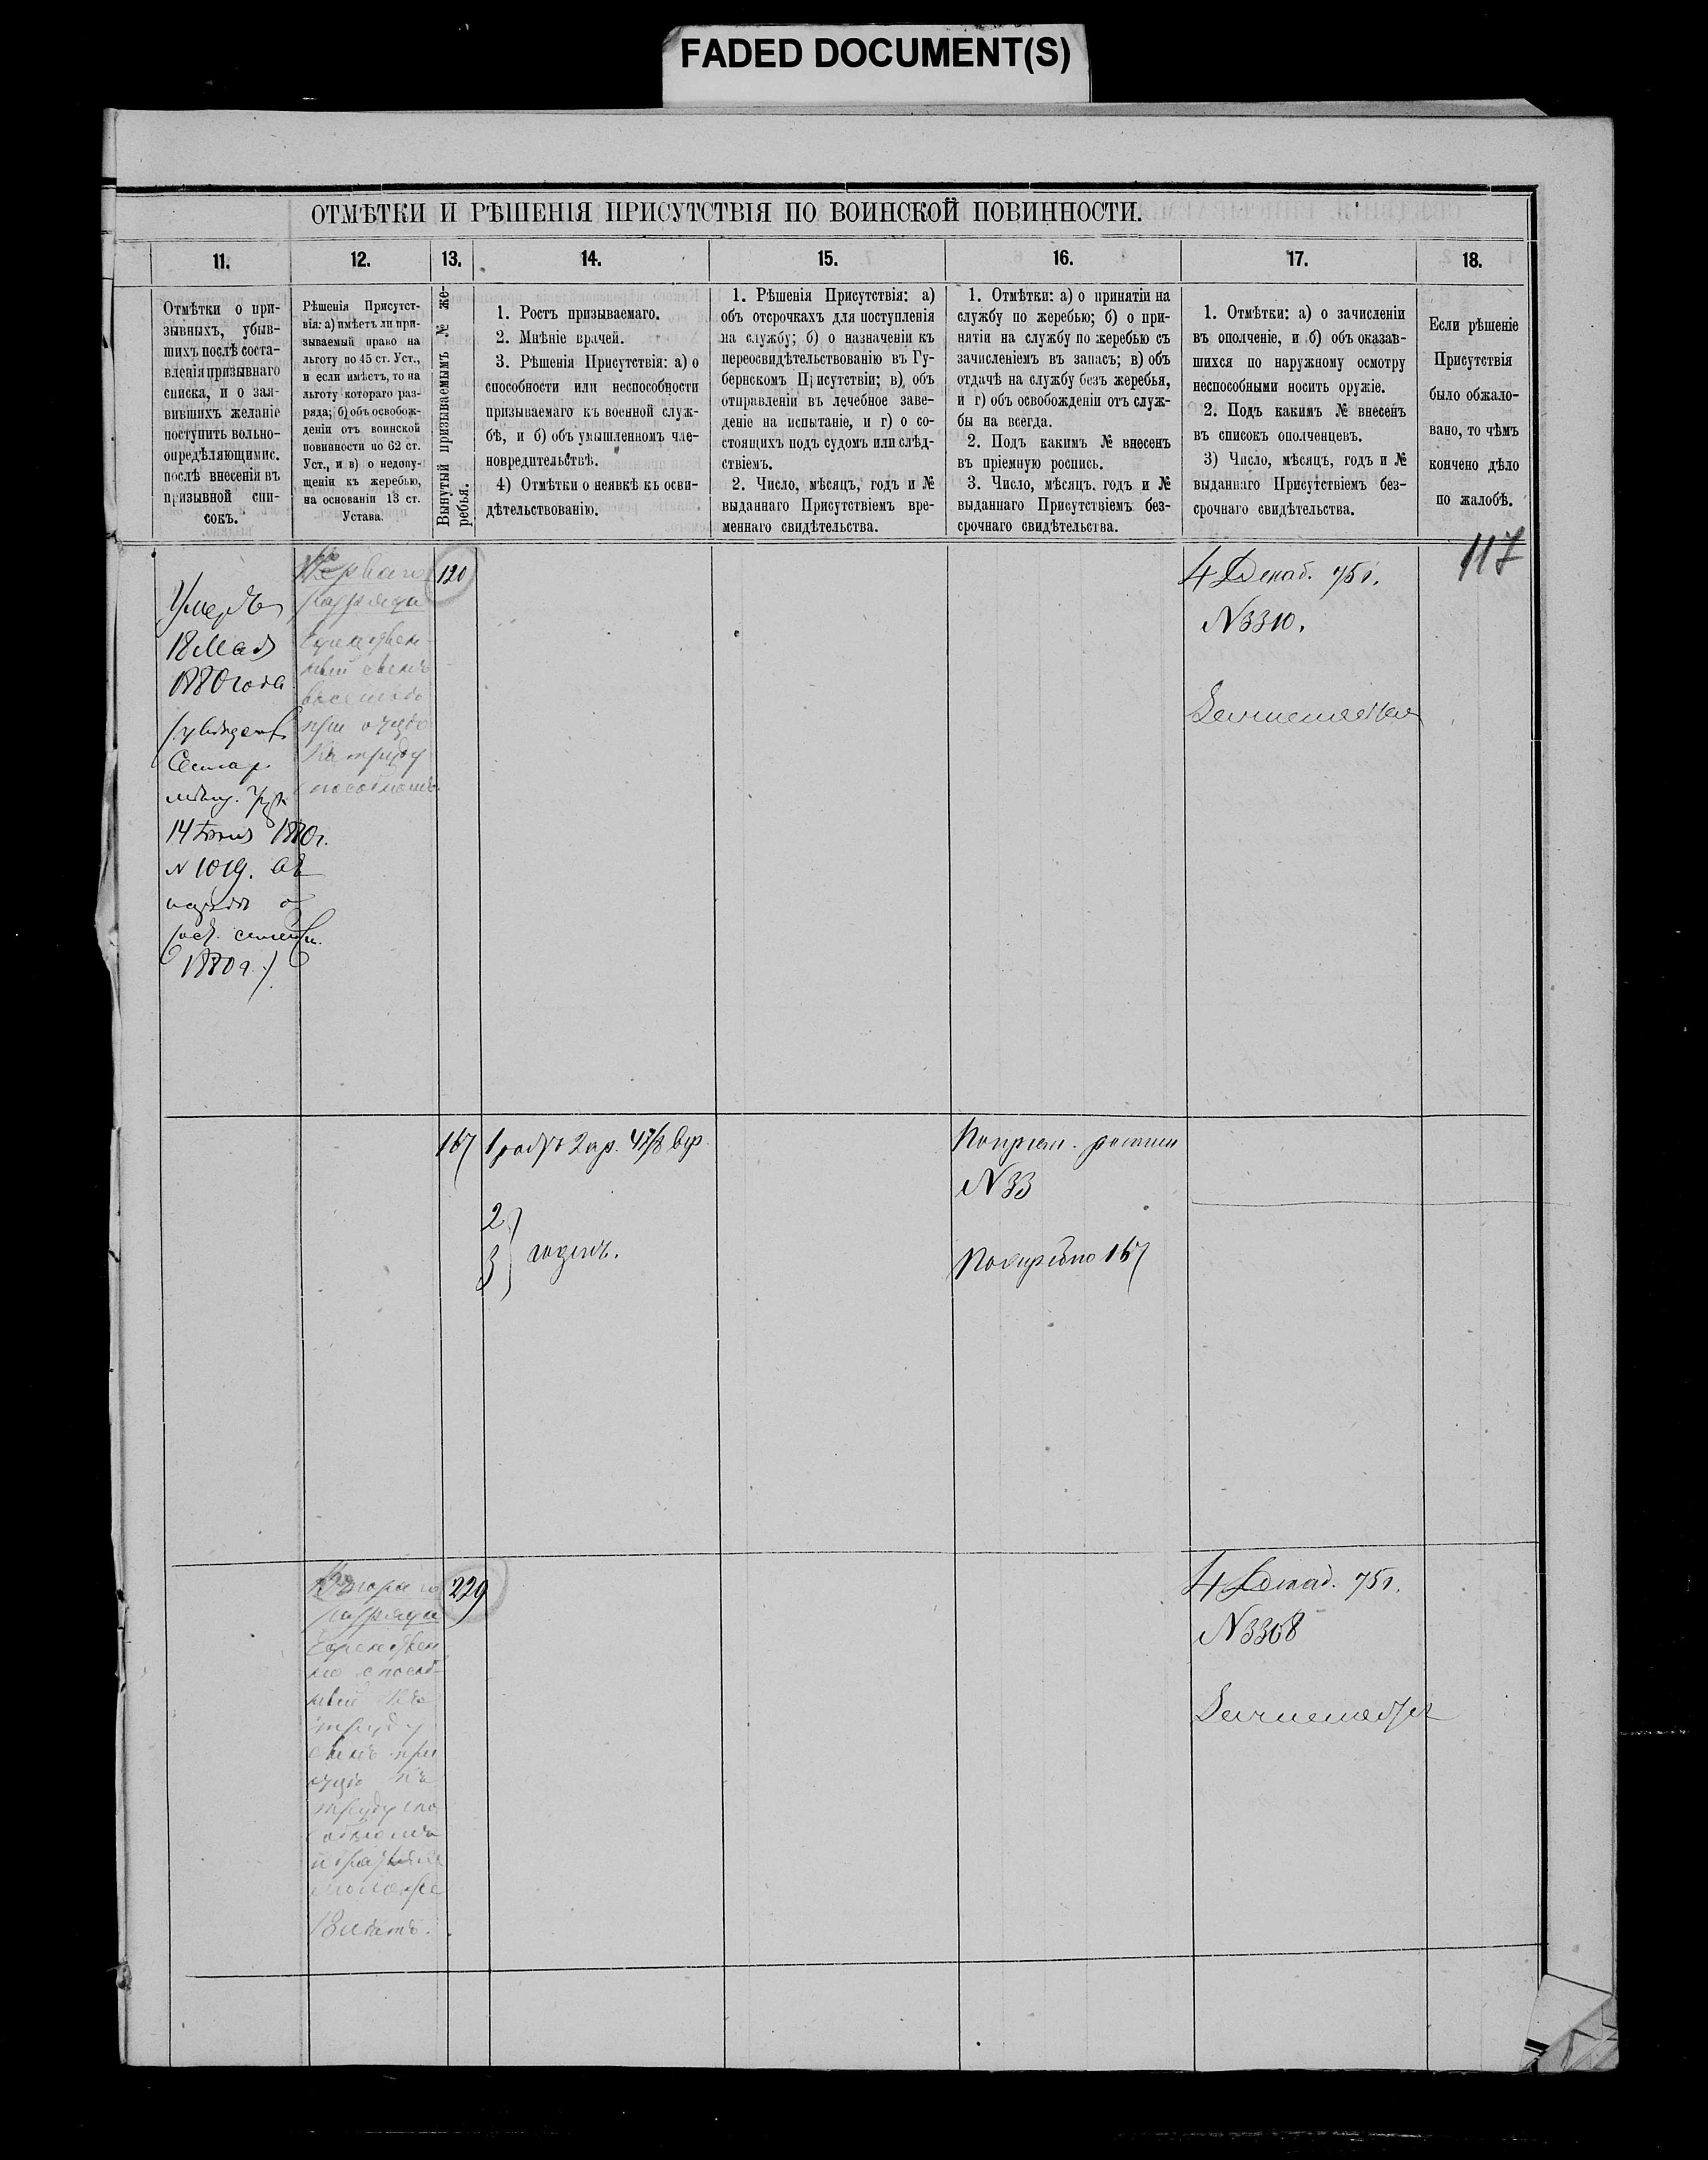 FADED DOCUMENT(S)
ОТМѢТКИ И РѢШЕНІЯ ПРИСУТСТВІЯ ПО ВОИНСКОЙ ПОВИННОСТИ.
11.
12.
13.
14.
15.
16.
17.
18.
Отмѣтки о при-
зывныхъ, убыв-
шихъ послѣ соста-
вленія призывнаго
списка, и о зая-
вившихъ желаніе
поступить вольно-
опредѣляющимис.
послѣ внесенія въ
призывной спи-
сокъ.
Рѣшенія Присутст-
вія: а) имѣетъ ли при-
зываемый право на
льготу по 45 ст. Уст.,
и если имѣетъ, то на
льготу котораго раз-
ряда; б) объ освобож-
деніи отъ воинской
повинности по 62 ст.
Уст., и в) о недопу-
щеніи къ жеребью,
на основаніи 13 ст.
Устава.
Вынутый призываемымъ № же-
ребья.
1. Ростъ призываемаго.
2. Мнѣніе врачей.
3. Рѣшенія Присутствія: а) о
способности или неспособности
призываемаго къ военной служ-
бѣ, и б) объ умышленномъ чле-
новредительствѣ.
4) Отмѣтки о неявкѣ къ осви-
дѣтельствованію.
1. Рѣшенія Присутствія: а)
объ отсрочкахъ для поступленія
на службу; б) о назначеніи къ
переосвидѣтельствованію въ Гу-
бернскомъ Присутствіи; в) объ
отправленіи въ лечебное заве-
деніе на испытаніе, и г) о со-
стоящихъ подъ судомъ или слѣд-
ствіемъ.
2. Число, мѣсяцъ, годъ и №
выданнаго Присутствіемъ вре-
меннаго свидѣтельства.
1. Отмѣтки: а) о принятіи на
службу по жеребью; б) о при-
нятіи на службу по жеребью съ
зачисленіемъ въ запасъ; в) объ
отдачѣ на службу безъ жеребья,
и г) объ освобожденіи отъ служ-
бы на всегда.
2. Подъ какимъ № внесенъ
въ пріемную роспись.
3. Число, мѣсяцъ, годъ и №
выданнаго Присутствіемъ без-
срочнаго свидѣтельства.
1. Отмѣтки: а) о зачисленіи
въ ополченіе, и б) объ оказав-
шихся по наружному осмотру
неспособными носить оружіе.
2. Подъ какимъ № внесенъ
въ списокъ ополченцевъ.
3) Число, мѣсяцъ, годъ и №
выданнаго Присутствіемъ без-
срочнаго свидѣтельства.
Если рѣшеніе
Присутствія
было обжало-
вано, то чѣмъ
кончено дѣло
по жалобѣ.
117
Умеръ
18 Мая
1880 года
14 1880 г.
N 1019.
1880 г.)
Перваго
разряда
Единствен-
ный сынъ
при отцѣ
къ труду
120
4 Декаб. 75 г.
N 3310.
167
1 ростъ 2 ар. 4 7/8 вер.
2
3
годенъ.
По пріем. росписи
N 33
По жеребью 167
Втораго
разряда
Единствен
но способ-
ный къ
труду
сынъ при
отцѣ къ
труду спо
собномъ
и братѣ
моложе
18 лѣтъ.
229
4 Декаб. 75 г.
N 3308